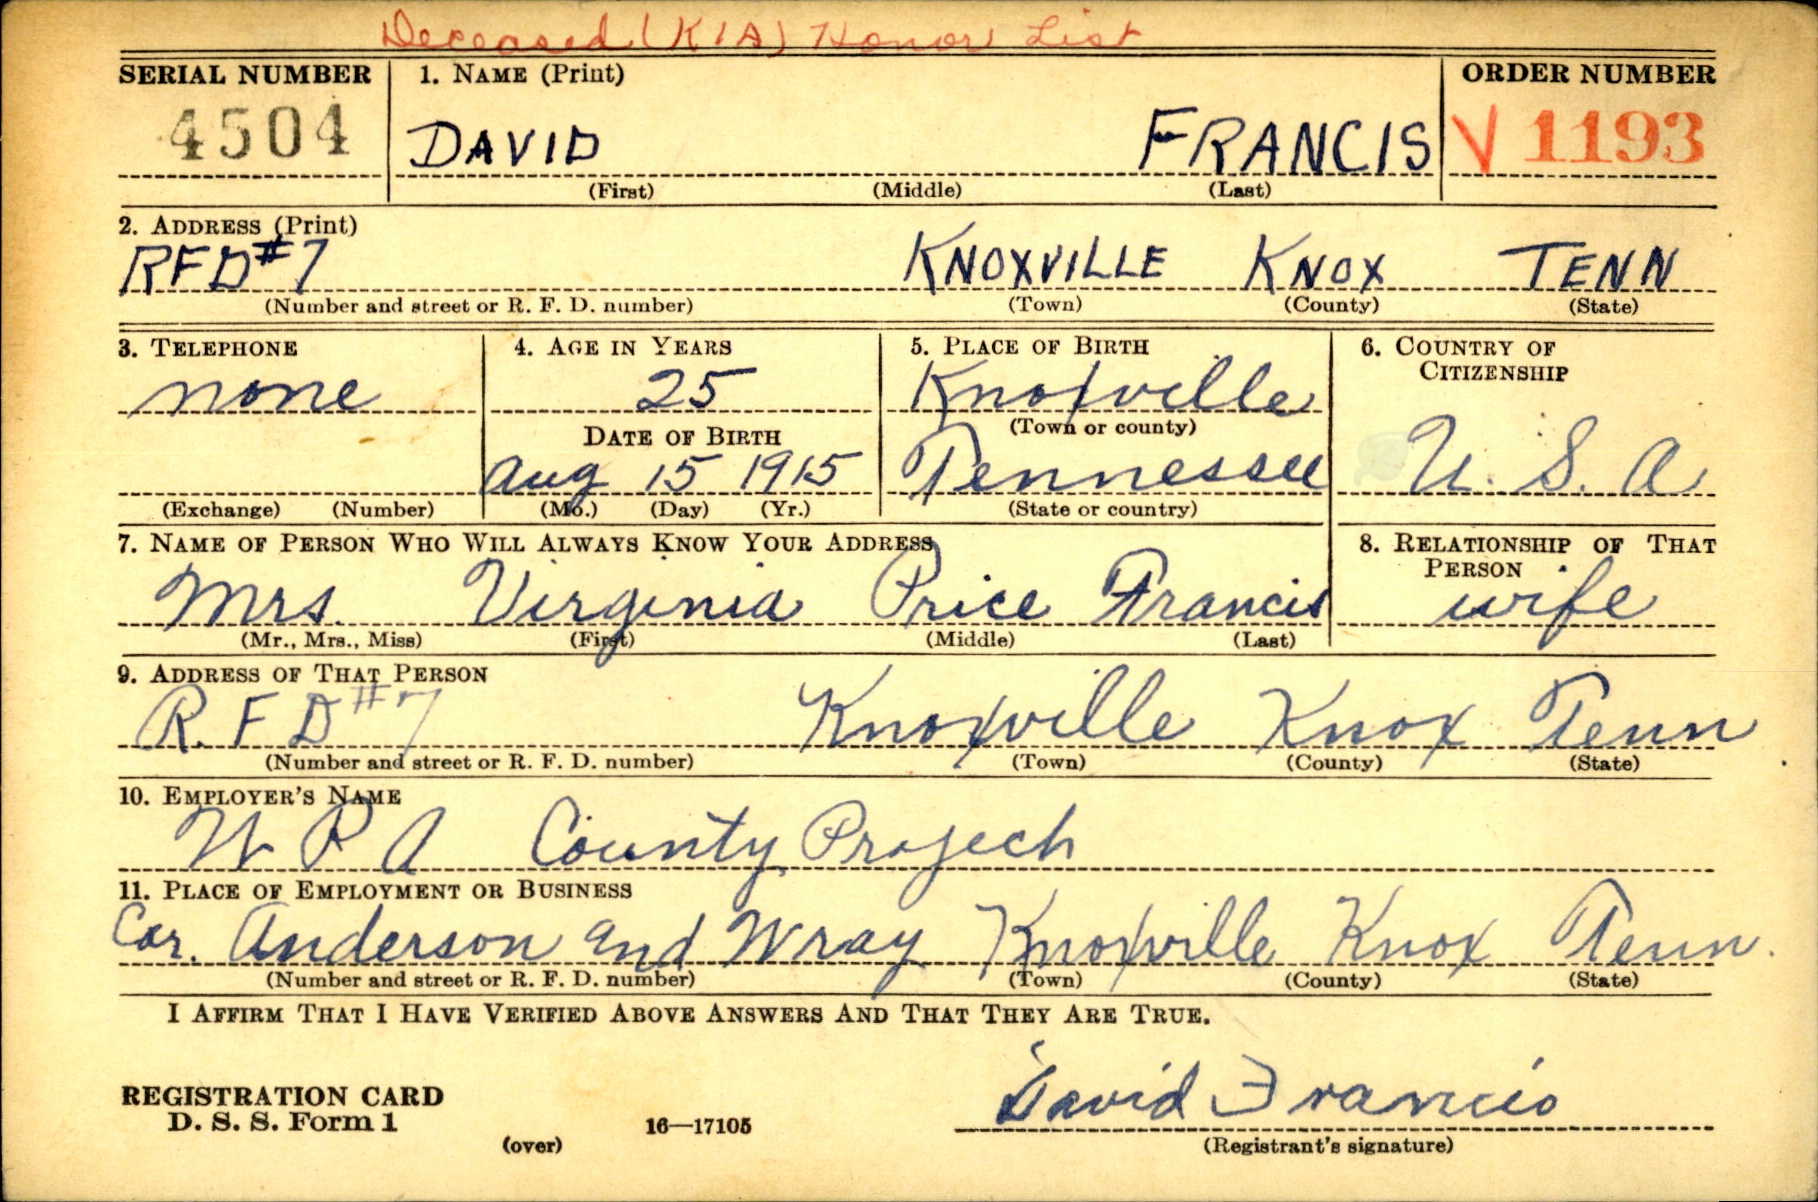 Deceased (KIA) Honor List
SERIAL NUMBER 1. NAME (Print) ORDER NUMBER
4504 DAVID FRANCIS V 1193
(First) (Middle) (Last)
2. ADDRESS (Print)
RFD#7 KNOXVILLE KNOX TENN
(Number and street or R. F. D. number) (Town) (County) (State)
3. TELEPHONE 4. AGE IN YEARS 5. PLACE OF BIRTH 6. COUNTRY OF
CITIZENSHIP
none 25 Knoxville
DATE OF BIRTH (Town or county)
Aug 15 1915 Tennessee U. S. A
(Exchange) (Number) (Mo.) (Day) (Yr.) (State or country)
7. NAME OF PERSON WHO WILL ALWAYS KNOW YOUR ADDRESS 8. RELATIONSHIP OF THAT
PERSON
Mrs. Virginia Price Francis wife
(Mr., Mrs., Miss) (First) (Middle) (Last)
9. ADDRESS OF THAT PERSON
R. F D #7 Knoxville Knox Tenn
(Number and street or R. F. D. number) (Town) (County) (State)
10. EMPLOYER'S NAME
W P A County Project
11. PLACE OF EMPLOYMENT OR BUSINESS
Cor. Anderson and Wray Knoxville Knox Tenn.
(Number and street or R. F. D. number) (Town) (County) (State)
I AFFIRM THAT I HAVE VERIFIED ABOVE ANSWERS AND THAT THEY ARE TRUE.
David Francis
REGISTRATION CARD
D. S. S. Form 1 16—17105
(over) (Registrant's signature)